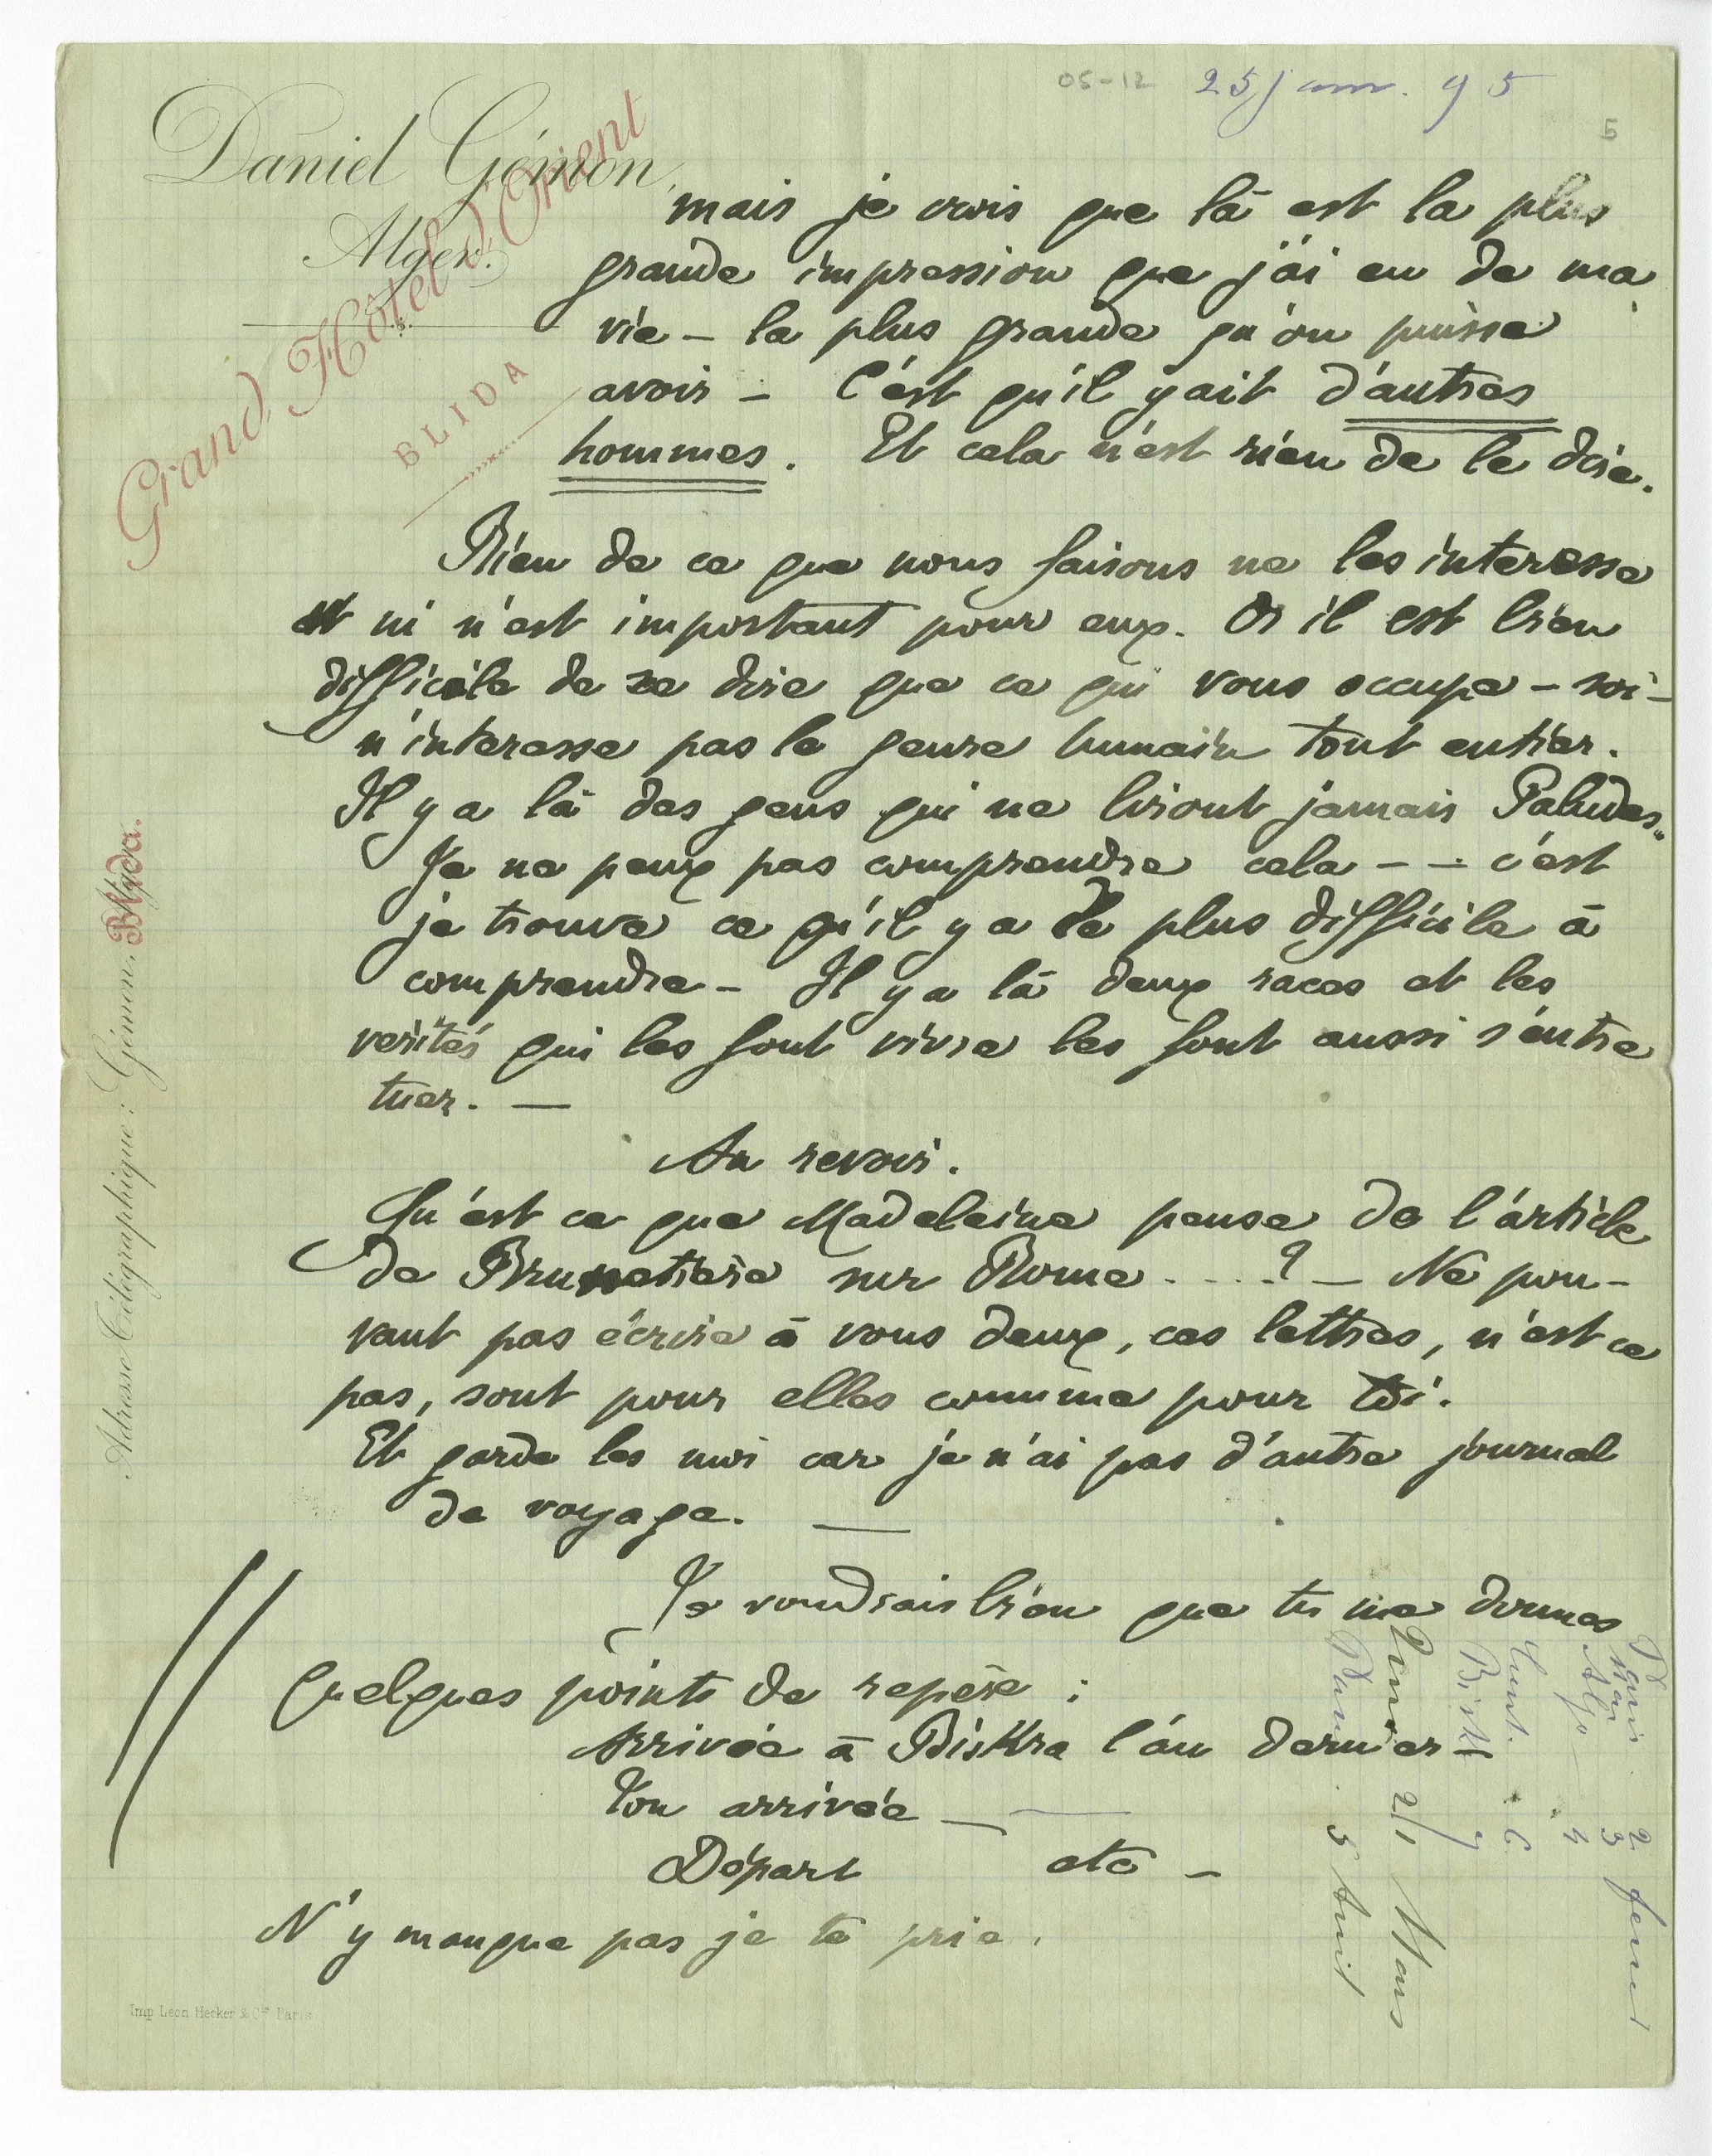 05-12 25 janv. 95
5
Daniel Gémon,
Alger.
Grand Hôtel d'Orient
BLIDA
mais je crois que là est la plus
grande impression que j'ai eu de ma
vie – la plus grande qu'on puisse
avoir – C'est qu'il y ait d'autres
hommes. Et cela n'est rien de le dire.
Rien de ce que nous faisons ne les interesse
ni n'est important pour eux. Or il est bien
difficile de se dire que ce qui vous occupe – soi –
n'interesse pas le genre humain tout entier.
Il y a là des gens qui ne liront jamais Paludes.
Je ne peux pas comprendre cela – – c'est
je trouve ce qu'il y a de plus difficile à
comprendre – Il y a là deux races et les
verités qui les font vivre les font aussi s'entre
tuer. —
Au revoir.
Qu'est ce que Madeleine pense de l'article
de Brunetiere sur Rome . . . . ? – Ne pou-
vant pas écrire à vous deux, ces lettres, n'est ce
pas, sont pour elles comme pour toi.
Et garde les moi car je n'ai pas d'autre journal
de voyage. —
Je voudrais bien que tu me donnes
quelques points de repère :
Arrivée à Biskra l'an dernier –
Ton arrivée — —
Départ etc –
N'y manque pas je te prie.
Paris 2
Mars 3
Alger 4
Const. 6
Tunis 21 Mars
5 Avril
Adresse Télégraphique : Gémon. Blida.
Imp Leon Hecker & Cie Paris